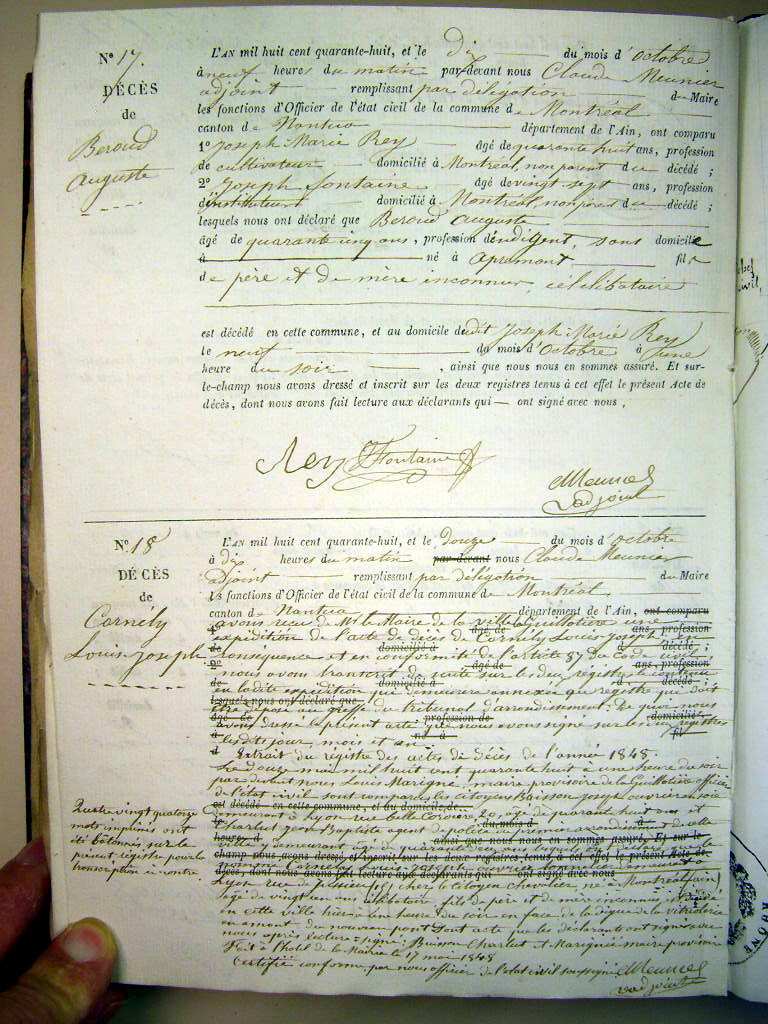 N° 17.
DÉCÈS
de
Beroud
Auguste
L'AN mil huit cent quarante-huit, et le dix du mois d'octobre
à neuf heures du matin par-devant nous Claude Meunier
adjoint remplissant par délégation du Maire
les fonctions d'Officier de l'état civil de la commune de Montréal
canton de Nantua département de l'Ain, ont comparu
1° Joseph-Marie Rey âgé de quarante huit ans, profession
de cultivateur domicilié à Montréal, non parent du décédé ;
2° Joseph fontaine âgé de vingt sept ans, profession
d'instituteur domicilié à Montréal, non parent du décédé ;
lesquels nous ont déclaré que Beroud Auguste
âgé de quarante cinq ans, profession d'indigent, sans domicilié
à né à Apremont fils
de père et de mère inconnus, célibataire
est décédé en cette commune, et au domicile dudit Joseph-Marie Rey
le neuf du mois d'octobre à une
heure du soir , ainsi que nous nous en sommes assuré. Et sur-
le-champ nous avons dressé et inscrit sur les deux registres tenus à cet effet le présent Acte de
décès, dont nous avons fait lecture aux déclarants qui ont signé avec nous.
Rey Fontaine
Meunier
adjoint
N° 18
DÉCÈS
de
Cornély
Louis-Joseph
L'AN mil huit cent quarante-huit, et le douze du mois d'octobre
à dix heures du matin par-devant nous Claude Meunier
adjoint remplissant par délégation du Maire
les fonctions d'Officier de l'état civil de la commune de Montréal
canton de Nantua département de l'Ain, ont comparu
avons reçu de Mr le Maire de la ville de la Guillotière une
expédition de l'acte de décès de Cornély Louis Joseph
conséquence et en conformité de l'article 87 du Code civil
nous avons transcrit de suite sur les deux registres le contenu
en ladite expédition qui demeurera annexée au registre qui doit
être déposé au greffe du tribunal d'arrondissement. De quoi nous
avons dressé le présent acte que nous avons signé sur les deux registres
les dits jour, mois et an
Extrait du registre des actes de décès de l'année 1848.
Le douze mai mil huit cent quarante huit à une heure du soir
par devant nous Louis Marignié, maire provisoire de la Guillotière officier
de l'état civil sont comparus les citoyens Buisson Joseph ouvrier en soie
demeurant à Lyon rue belle Cordière, 20, âgé de quarante huit ans et
Charlut Jean Baptiste agent de police du premier arrondissement de cette
ville y demeurant âgé de quarante
Cornély Louis
Lyon rue de chez le citoyen Chevalier, né à Montréal (ain)
âgé de vingt un ans célibataire, fils de père et de mère inconnus est décédé
en cette ville hier à une heure du soir en face de la digue de la vitriolerie
en amont du nouveau pont dont acte que les déclarants ont signé avec
nous après lecture = signé : Buisson Charlut et Marignié maire provisoire
Fait à l'hôtel de la Mairie le 17 mai 1848
Certifié conforme par nous officier de l'état civil soussigné Meunier
adjoint
Quatre vingt quatorze
mots imprimés ont
été bâtonnés sur le
présent registre pour la
transcription ci contre